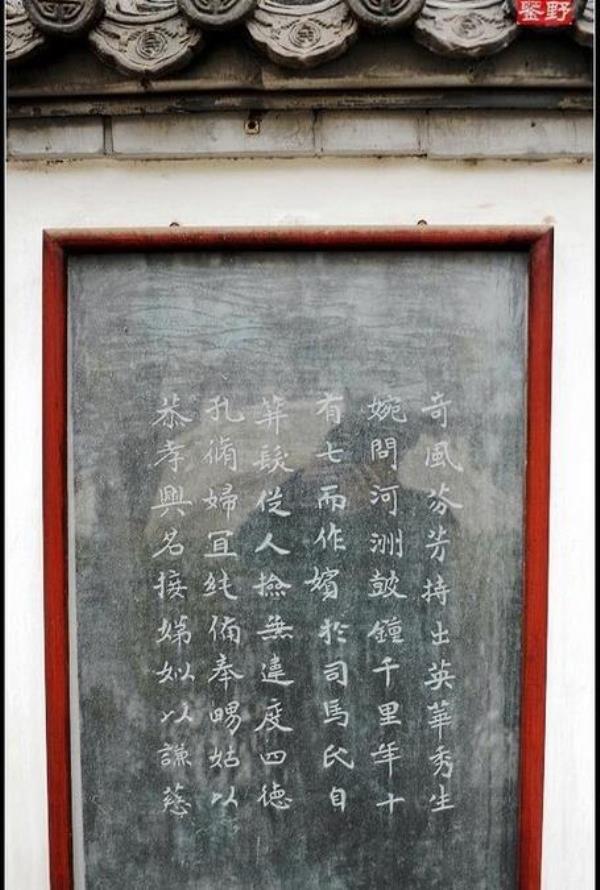 野鑒
奇風芬芳持出英華秀生
婉問河洲鼓鐘千里年十
有七而作嬪於司馬氏自
笄髮從人撿無違度四德
孔脩婦宜純備奉舅姑以
恭孝興名接娣姒以謙慈